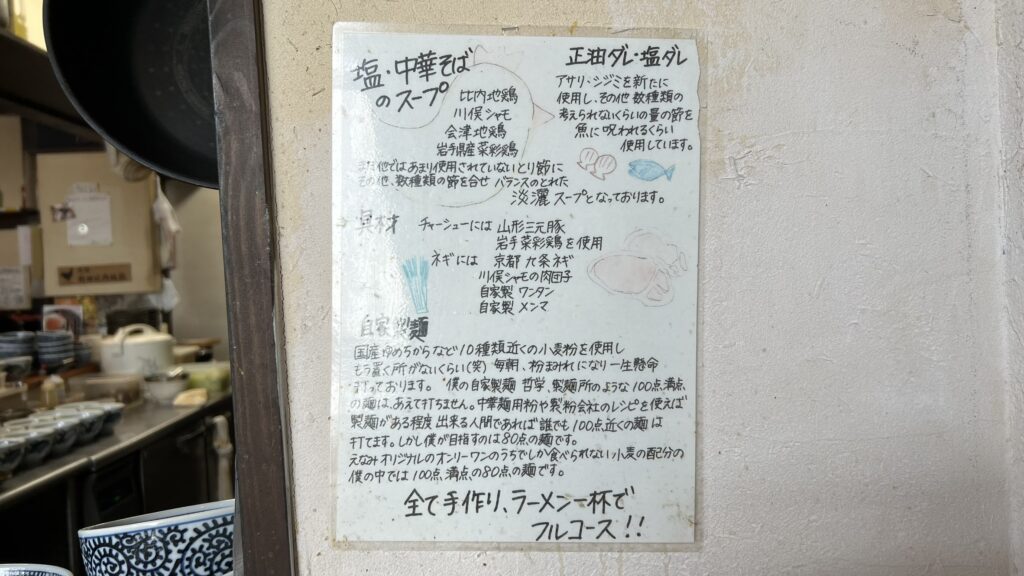 塩・中華そば
のスープ
比内地鶏
川俣シャモ
会津地鶏
岩手県産菜彩鶏
また他ではあまり使用されていないとり節に
その他、数種類の節を合せ バランスのとれた
淡灑 スープとなっております。
正油ダレ・塩ダレ
アサリ・シジミを新たに
使用し、その他 数種類の
考えられないくらいの量の節を
魚に呪われるくらい
使用しています。
具材 チャーシューには 山形三元豚
岩手菜彩鶏を使用
ネギには 京都 九条ネギ
川俣シャモの肉団子
自家製 ワンタン
自家製 メンマ
自家製麺
国産ゆめちからなど10種類近くの小麦粉を使用し
もう置く所がないくらい(笑) 毎朝、粉まみれになり一生懸命
打っております。 僕の自家製麺 哲学、製麺所のような100点満点
の麺は、あえて打ちません。中華麺用粉や製粉会社のレシピを使えば
製麺がある程度 出来る人間であれば 誰でも 100点近くの麺 は
打てます。しかし僕が目指すのは80点の麺です。
えなみオリジナルのオンリーワンのうちでしか食べられない小麦の配分の
僕の中では100点満点の80点の麺です。
全て手作り、ラーメン一杯で
フルコース!!